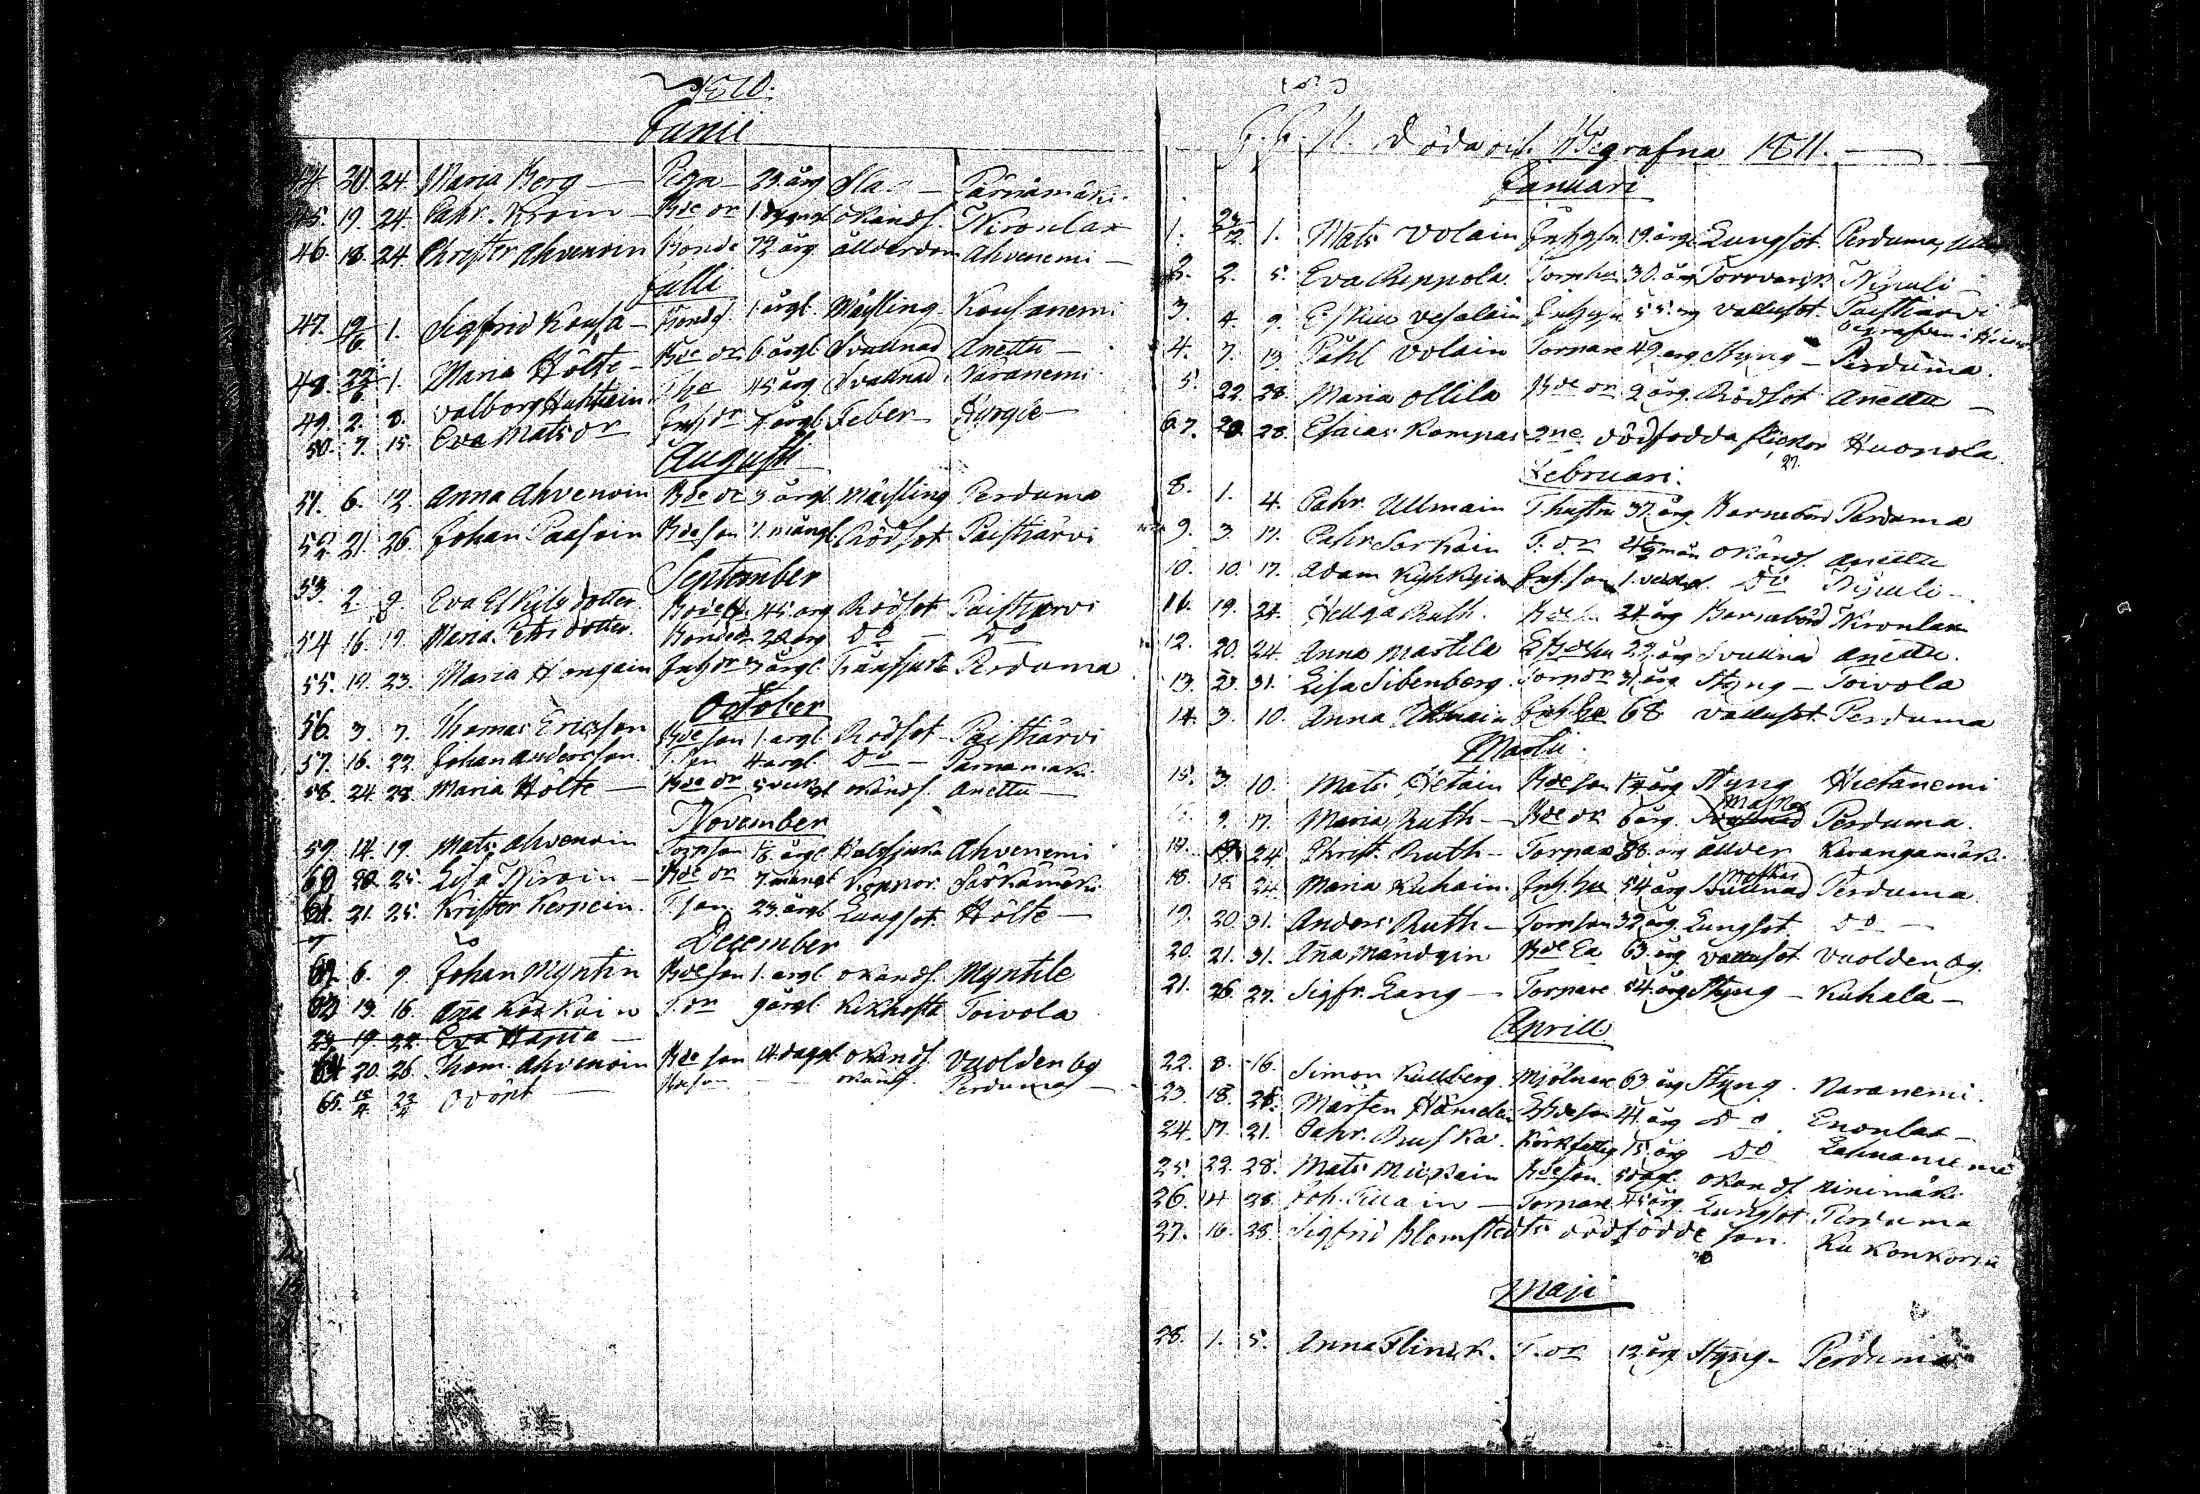 1810.
Junii
44. 30. 24. Maria Berg — Piga 23 årg Slag — Pärnämäki.
45. 19. 24. Cahr. Kroin — Bde dr okändt. Kironlax
46. 18. 24. Christer Ahvenoin Bonde 72 årg ållderdom Ahvenemi —
Julli
47. 19/6 1. Sigfrid Kousa — Bonds. 1 årgl. Mässling Kousanemi
48. 29/6 1. Maria Hölte — Bde dr 6 årgl. Svullnad Anettu —
49. 2. 8. Valborg Huhtiein Ehe 45 årg Svullnad Naranemi
50. 7. 15. Eva Matsdr Inhdr 4 årgl Feber —
Augusti
51. 6. 12. Anna Ahvenoin Bde dr 3 årgl Mässling Perduma
52. 21. 26. Johan Paasoin Bde son 1. mångl. Rödsot Paistiärvi
September
53. 2. 9. Eva Eskilsdotter 45 årg Rödsot Paistjervi
54 16. 19. Maria Petrsdotter Bonded. 22 årg do — do
55. 19. 23. Maria Hongain Inhdr 3 årgl. Perduma
October
56. 3. 7. Thomas Ericsson Bde son 1. årgl Rödsot Paistiärvi
57. 16. 22. Johan Andersson. T. son 4 årgl do — Pärnämäki
58. 24. 28. Maria Hölte — Bde dr 5 veck gl okändt. Anettu —
November
59. 14. 19. Mats Ahvenoin Torpson Halssjuka Ahvenemi
60 20. 25. Lisa Kiroin — Bde dr 7 mångl Koppor Särkämäki
61. 21. 25. Krister Kernein. T. son. 23 årgl. Lungsot. Hölte —
December
62. 6. 9. Johan Myntin Bde son 1. årgl okändt. Myntile
63 13. 16. Anna Koskoin T. dr 9 årgl Kikhosta Toivola
23. 19 22. Eva Hapia —
64 20. 26. Thom. Ahvenoin Bde son 14 daggl okändt. Vuolden by
65. Odöpt — Bde son — — okändt. Perduma —
J. J. N. Döda och Begrafna 1811. —
Januari
1. 1. Mats Volain Inhysn 19 årg Lungsot. Perduma,
2. 2. 5. Eva Reppola. Torphu 30 årg Torrvärk Kijuli —
3 4. 9. Eskill Vesalain Inhysn 55 årg Vattusot. Paistiärvi
begrafven i
4. 7. 13 Påhl Volain Torpare 49 årg Styng — Perduma.
5. 22. 28. Maria Ollila Bde dr 2 årg Rödsot Anettu —
6.7. 20. 28. Esaias Kompas 2ne dödfödda flickor Huonola.
27.
Februari.
8. 1. 4. Cahr. Ullmain T. hustru 37 årg. Barnebörd Perduma
9. 3. 17. Cahr Sorkain T. dr 4½ mån okändt. Anettu
10. 10. 17. Adam Kyhkyin Inh. son 1. veckgl do Kijuli —
11. 19. 24. Hellga Ruth. 24 årg Barnebörd Kironlax
12. 20. 24. Anna Martila 29 årg Svullnad Anettu.
13. 23. 31. Lisa Sibenberg. Torpdr 31 årg Styng — Toivola
14. 3. 10. Anna Ullmain Inh Ea 68 Vattusot Perduma
Martii.
15. 3. 10. Mats Hetain Bde son 14 årg Styng Hietanemi
9. 17. Maria Ruth — Bde dr 6 årg. Svullnad Perduma.
17. 24 Christ. Ruth — Torpare 88. årg Ållder Karangamäki
18. 18. 24. Maria Kuhain. Inh. hu 54 årg Svullnad Perduma
19. 20 31. Anders Ruth — Torpson 32 årg Lungsot. do —
20. 21. 31. Anna Mändyin Bde Ea 63 årg Vattusot Vuolden by.
21. 26 27. Sigfr. Lang — Torpare 54 årg Styng — Kuhala —
Aprill
22. 8. 16. Simon Kullberg. Mjölnare 63 årg Styng. Naranemi.
23 18. 21. Mårten Hämelän 41 årg do. Enonlax —
24. 17. 21. Cahr. Ruska. Körkfattig 15 årg do
25. 22. 28. Mats Mickain Bde son. okändt Rinimäki
26. 14 28 Joh. Tillain — Torpare 45 årg Lungsot Perduma
27. 16. 28. Sigfrid Blomstedts dödfödde son. Kukonkorvi
Maji
28. 1. 5. Anna Flinck. T. dr 12 årg Styng — Perduma